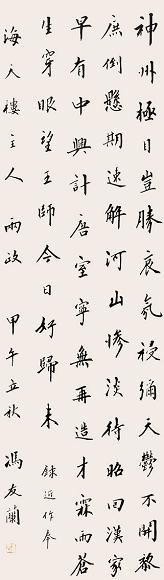 神州極目豈勝哀氛祲彌天鬱不開黎
庶倒懸期速解河山慘淡待昭回漢家
早有中興計唐室寧無再造才霖雨蒼
生穿眼望王師今日好歸來 錄近作奉
海天樓主人兩政 甲午立秋 馮友蘭